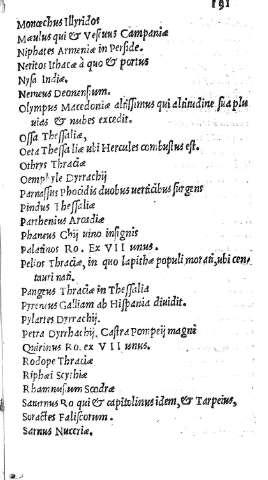 191
Monœchus Illyridos
Mæulus qui & Vesuus Campaniæ
Niphates Armeniæ in Perside.
Neritos Ithacæ à quo & portus
Nysa Indiæ.
Nemeus Deonensium.
Olympus Macedoniæ altissimus qui altitudine sua plu
uias & nubes excedit.
Ossa Thessaliæ,
Oeta Thessaliæ ubi Hercules combustus est.
Othrys Thraciæ
Oemphyle Dyrrachij
Parnassus Phocidis duobus uerticibus surgens
Pindus Thessaliæ
Parthenius Arcadiæ
Phaneus Chij uino insignis
Palatinos Ro. Ex VII unus.
Pelios Thraciæ, in quo lapithæ populi morati, ubi cen-
tauri nati.
Pangeus Thraciæ in Thessalia
Pyreneus Galliam ab Hispania diuidit.
Pylartes Dyrrachij.
Petra Dyrrhachij. Castra Pompeij magni
Quirinus Ro. ex VII unus.
Rodope Thraciæ
Riphæi Scythiæ
Rhamnusium Scodræ
Saturnus Ro qui & capitolinus idem, & Tarpeius,
Soractes Faliscorum.
Sarnus Nuceriæ.